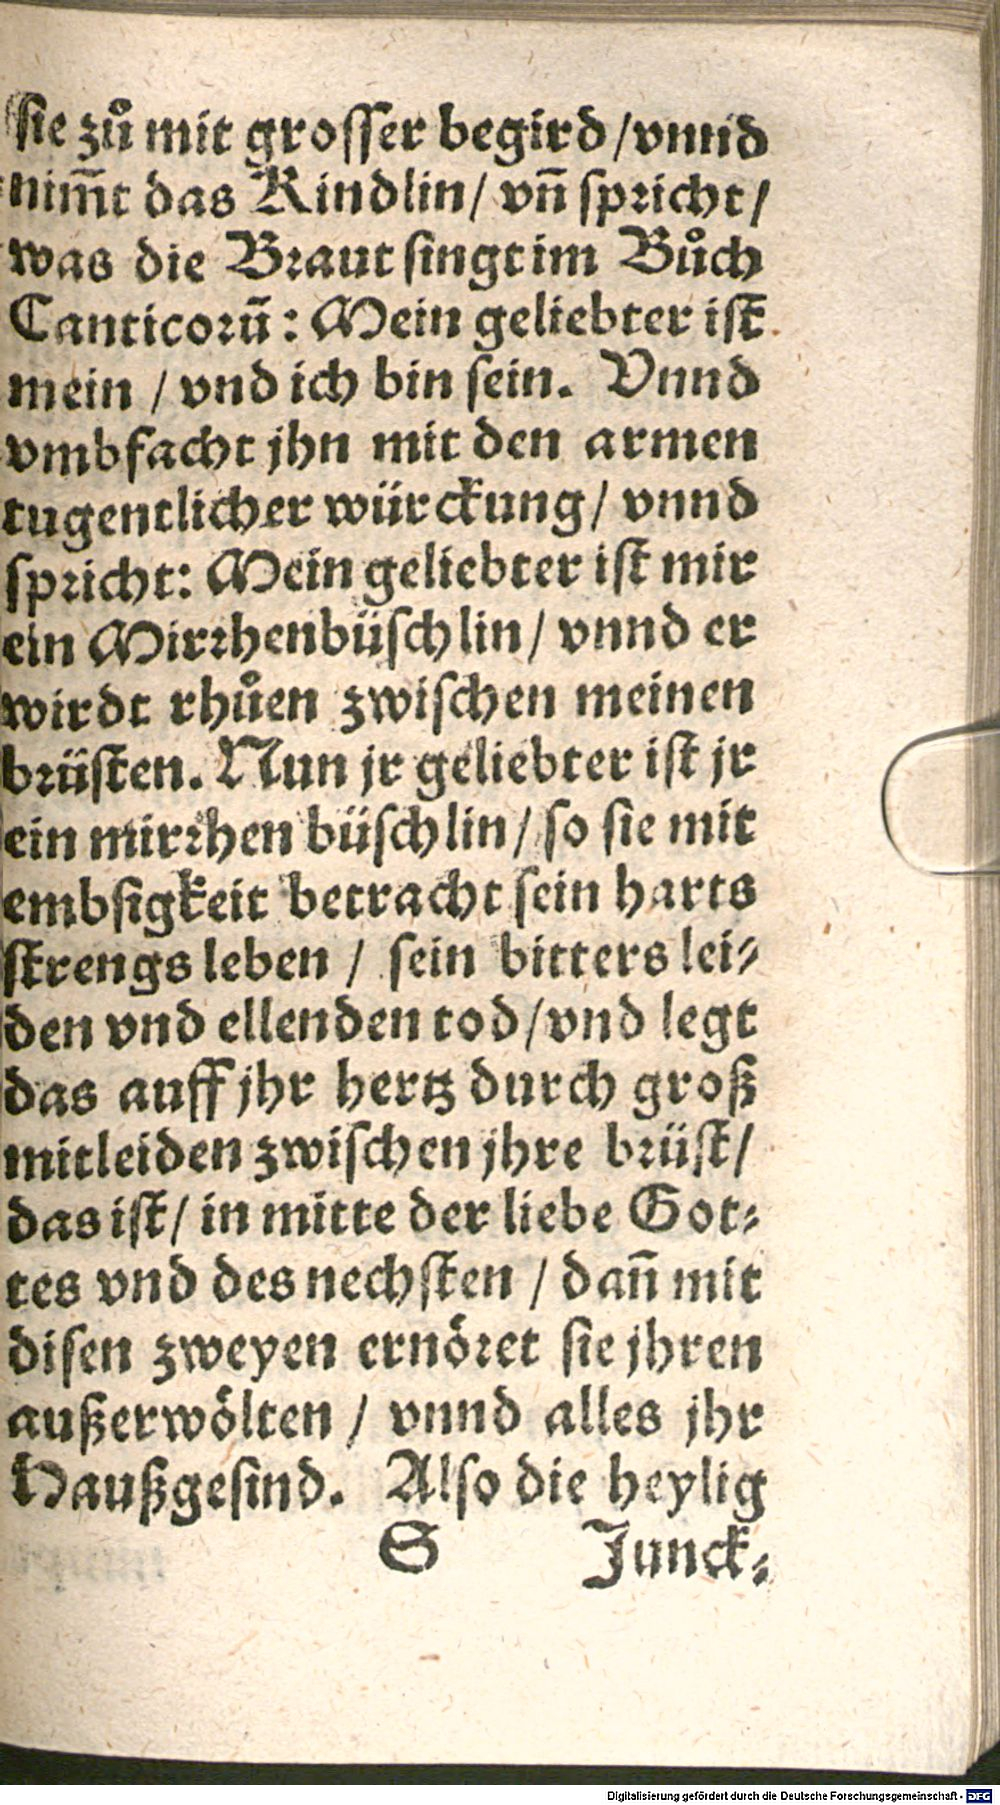 sie zů mit grosser begird/vnnd
nim̃t das Kindlin/ vñ spricht/
was die Braut singt im Bůch
Canticorũ: Mein geliebter ist
mein / vnd ich bin sein. Vnnd
vmbfacht jhn mit den armen
tugentlicher würckung/ vnnd
spricht: Mein geliebter ist mir
ein Mirrhenbüschlin/ vnnd er
wirdt rhůen zwischen meinen
brüsten. Nun jr geliebter ist jr
ein mirrhen büschlin/ so sie mit
embsigkeit betracht sein harts
strengs leben / sein bitters lei⸗
den vnd ellenden tod/vnd legt
das auff jhr hertz durch groß
mitleiden zwischen jhre brüst/
das ist/ in mitte der liebe Got⸗
tes vnd des nechsten / dañ mit
disen zweyen ernöret sie jhren
außerwölten / vnnd alles jhr
Haußgesind. Also die heylig
S Junck⸗
Digitalisierung gefördert durch die Deutsche Forschungsgemeinschaft - DFG